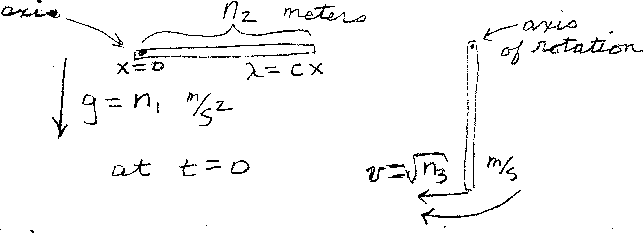 axis
n₂ meters
x=0
λ = cx
g = n₁ m/s²
at t=0
axis of rotation
v=√n₃ m/s